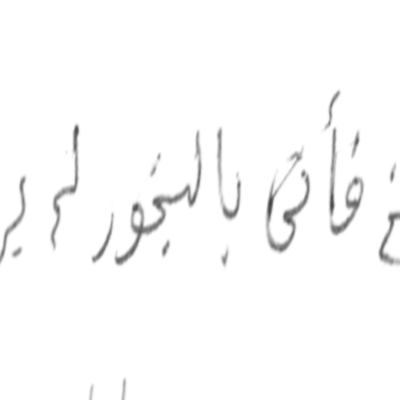 فأتى بالبخور لم